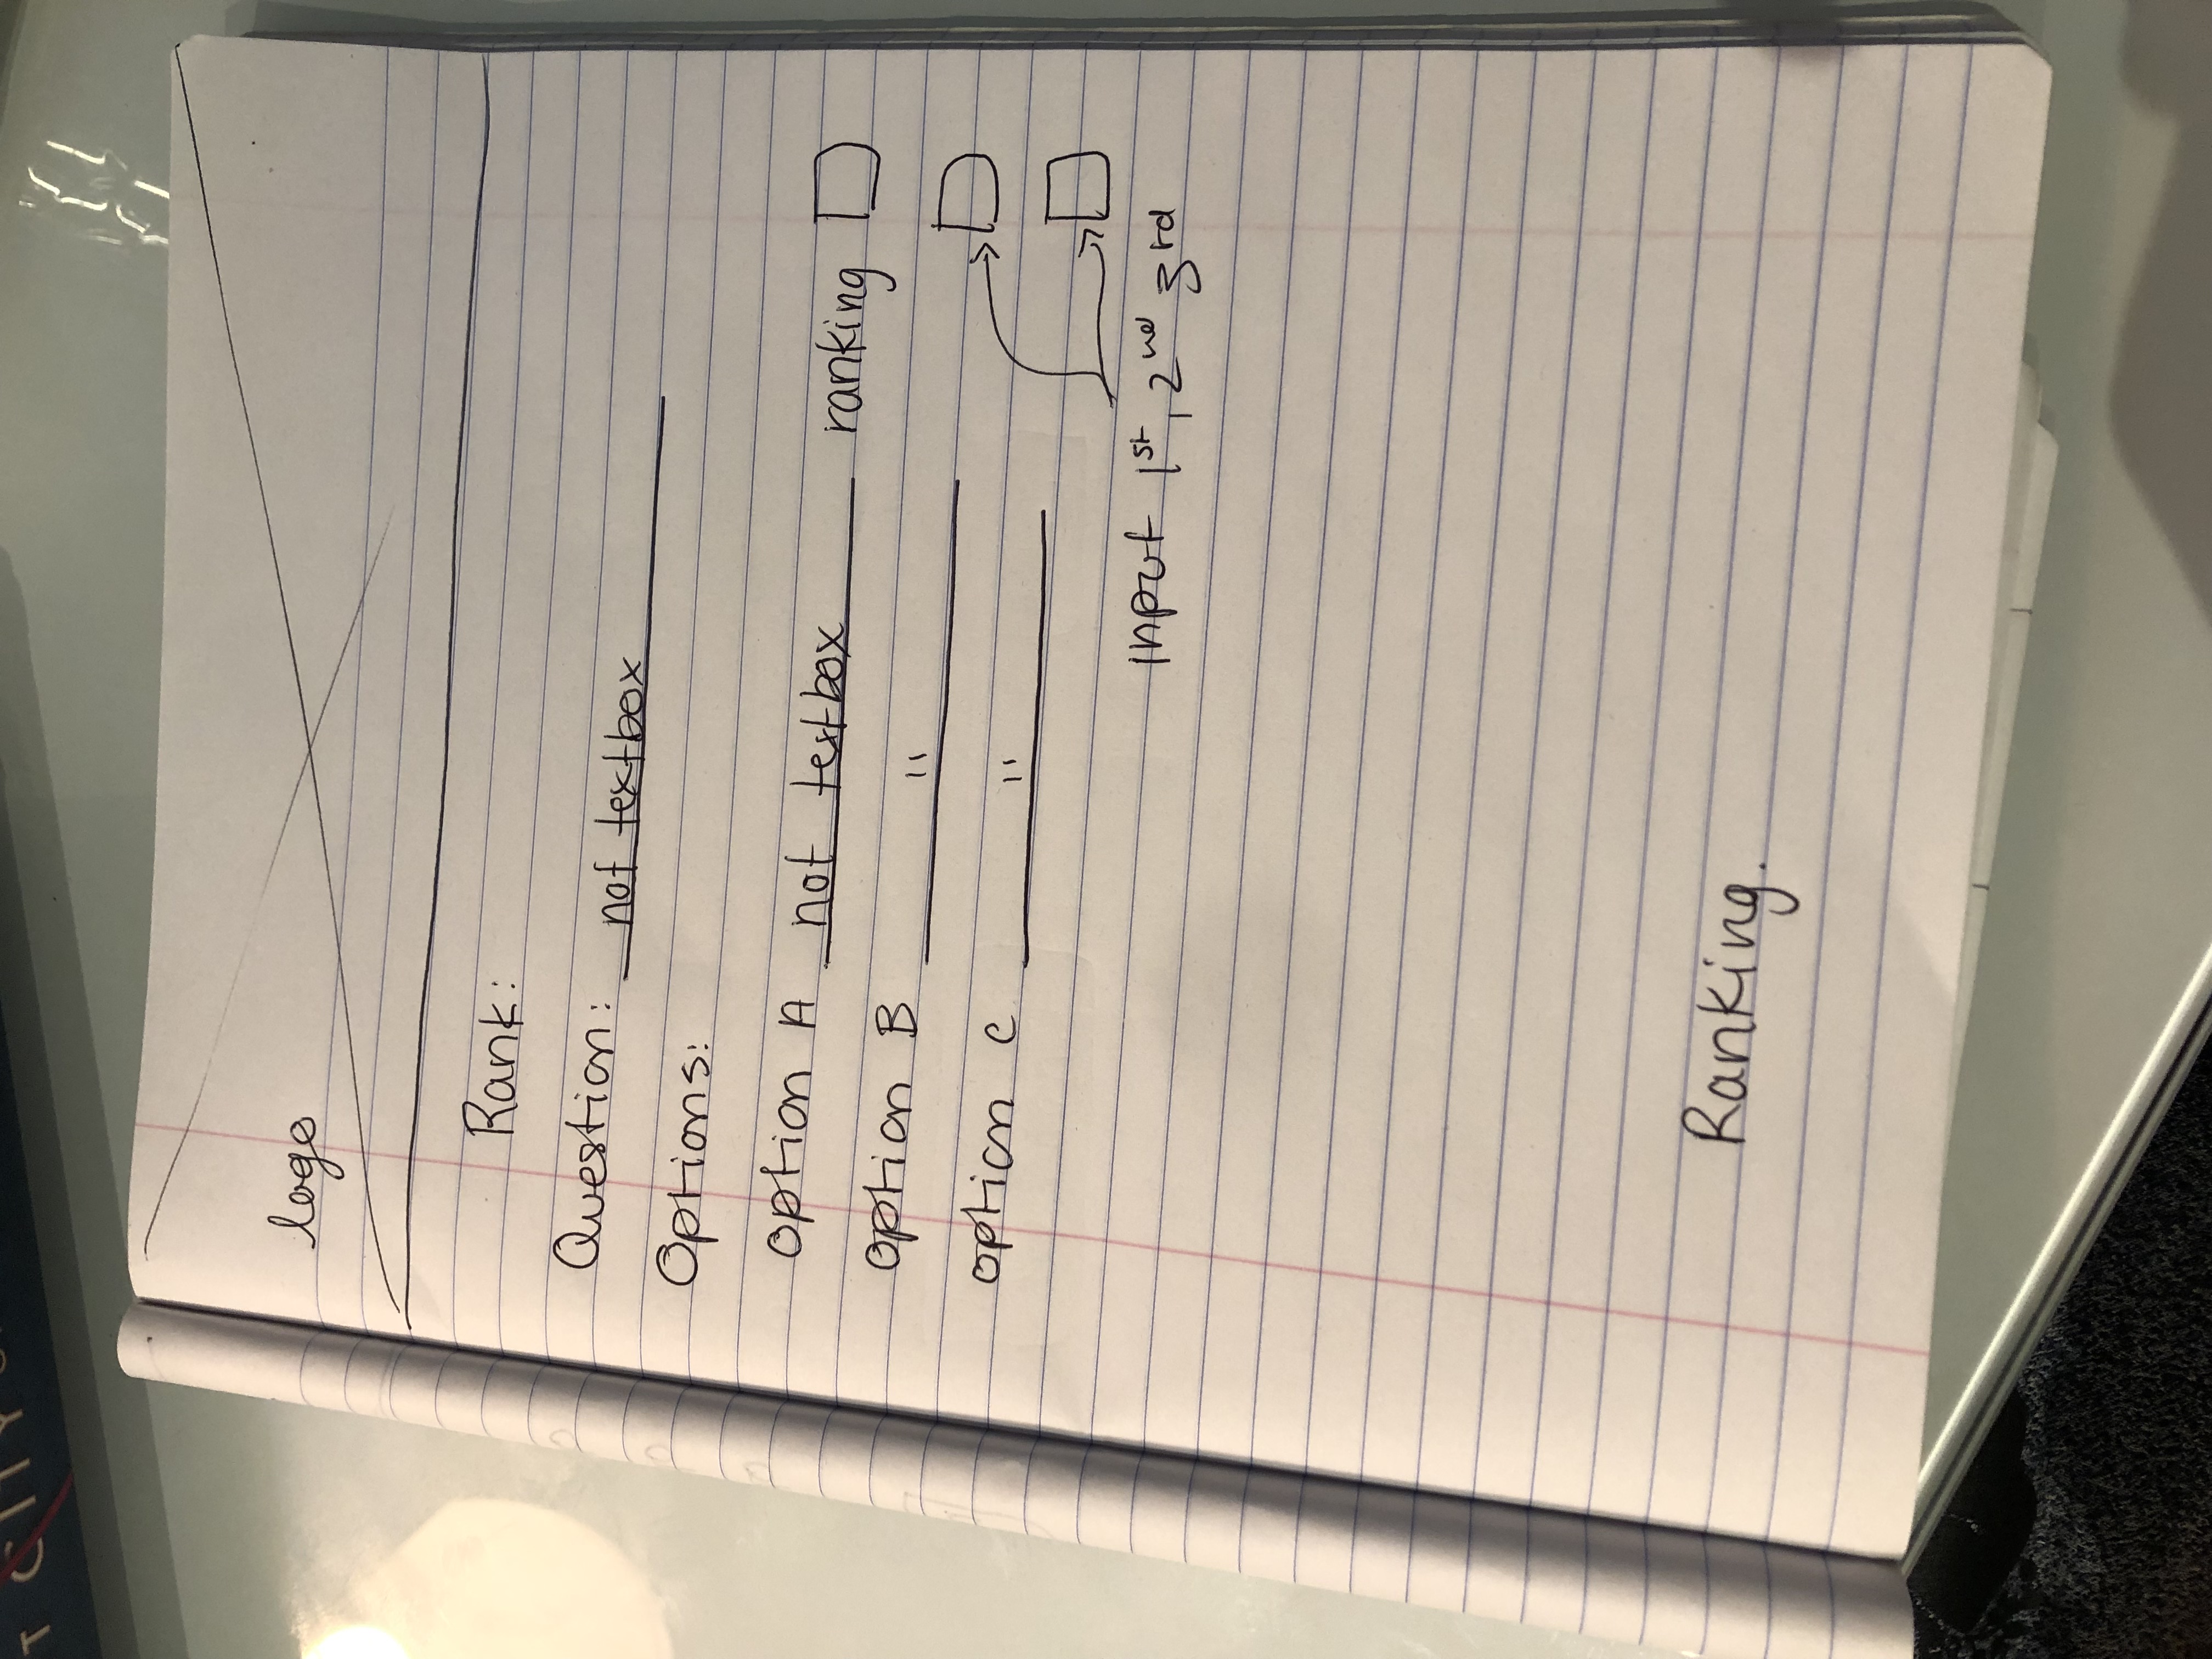 T CITY
logo
Rank:
Question: not textbox
Options:
option A not textbox ranking
option B "
option C "
Input 1st, 2nd 3rd
Ranking.